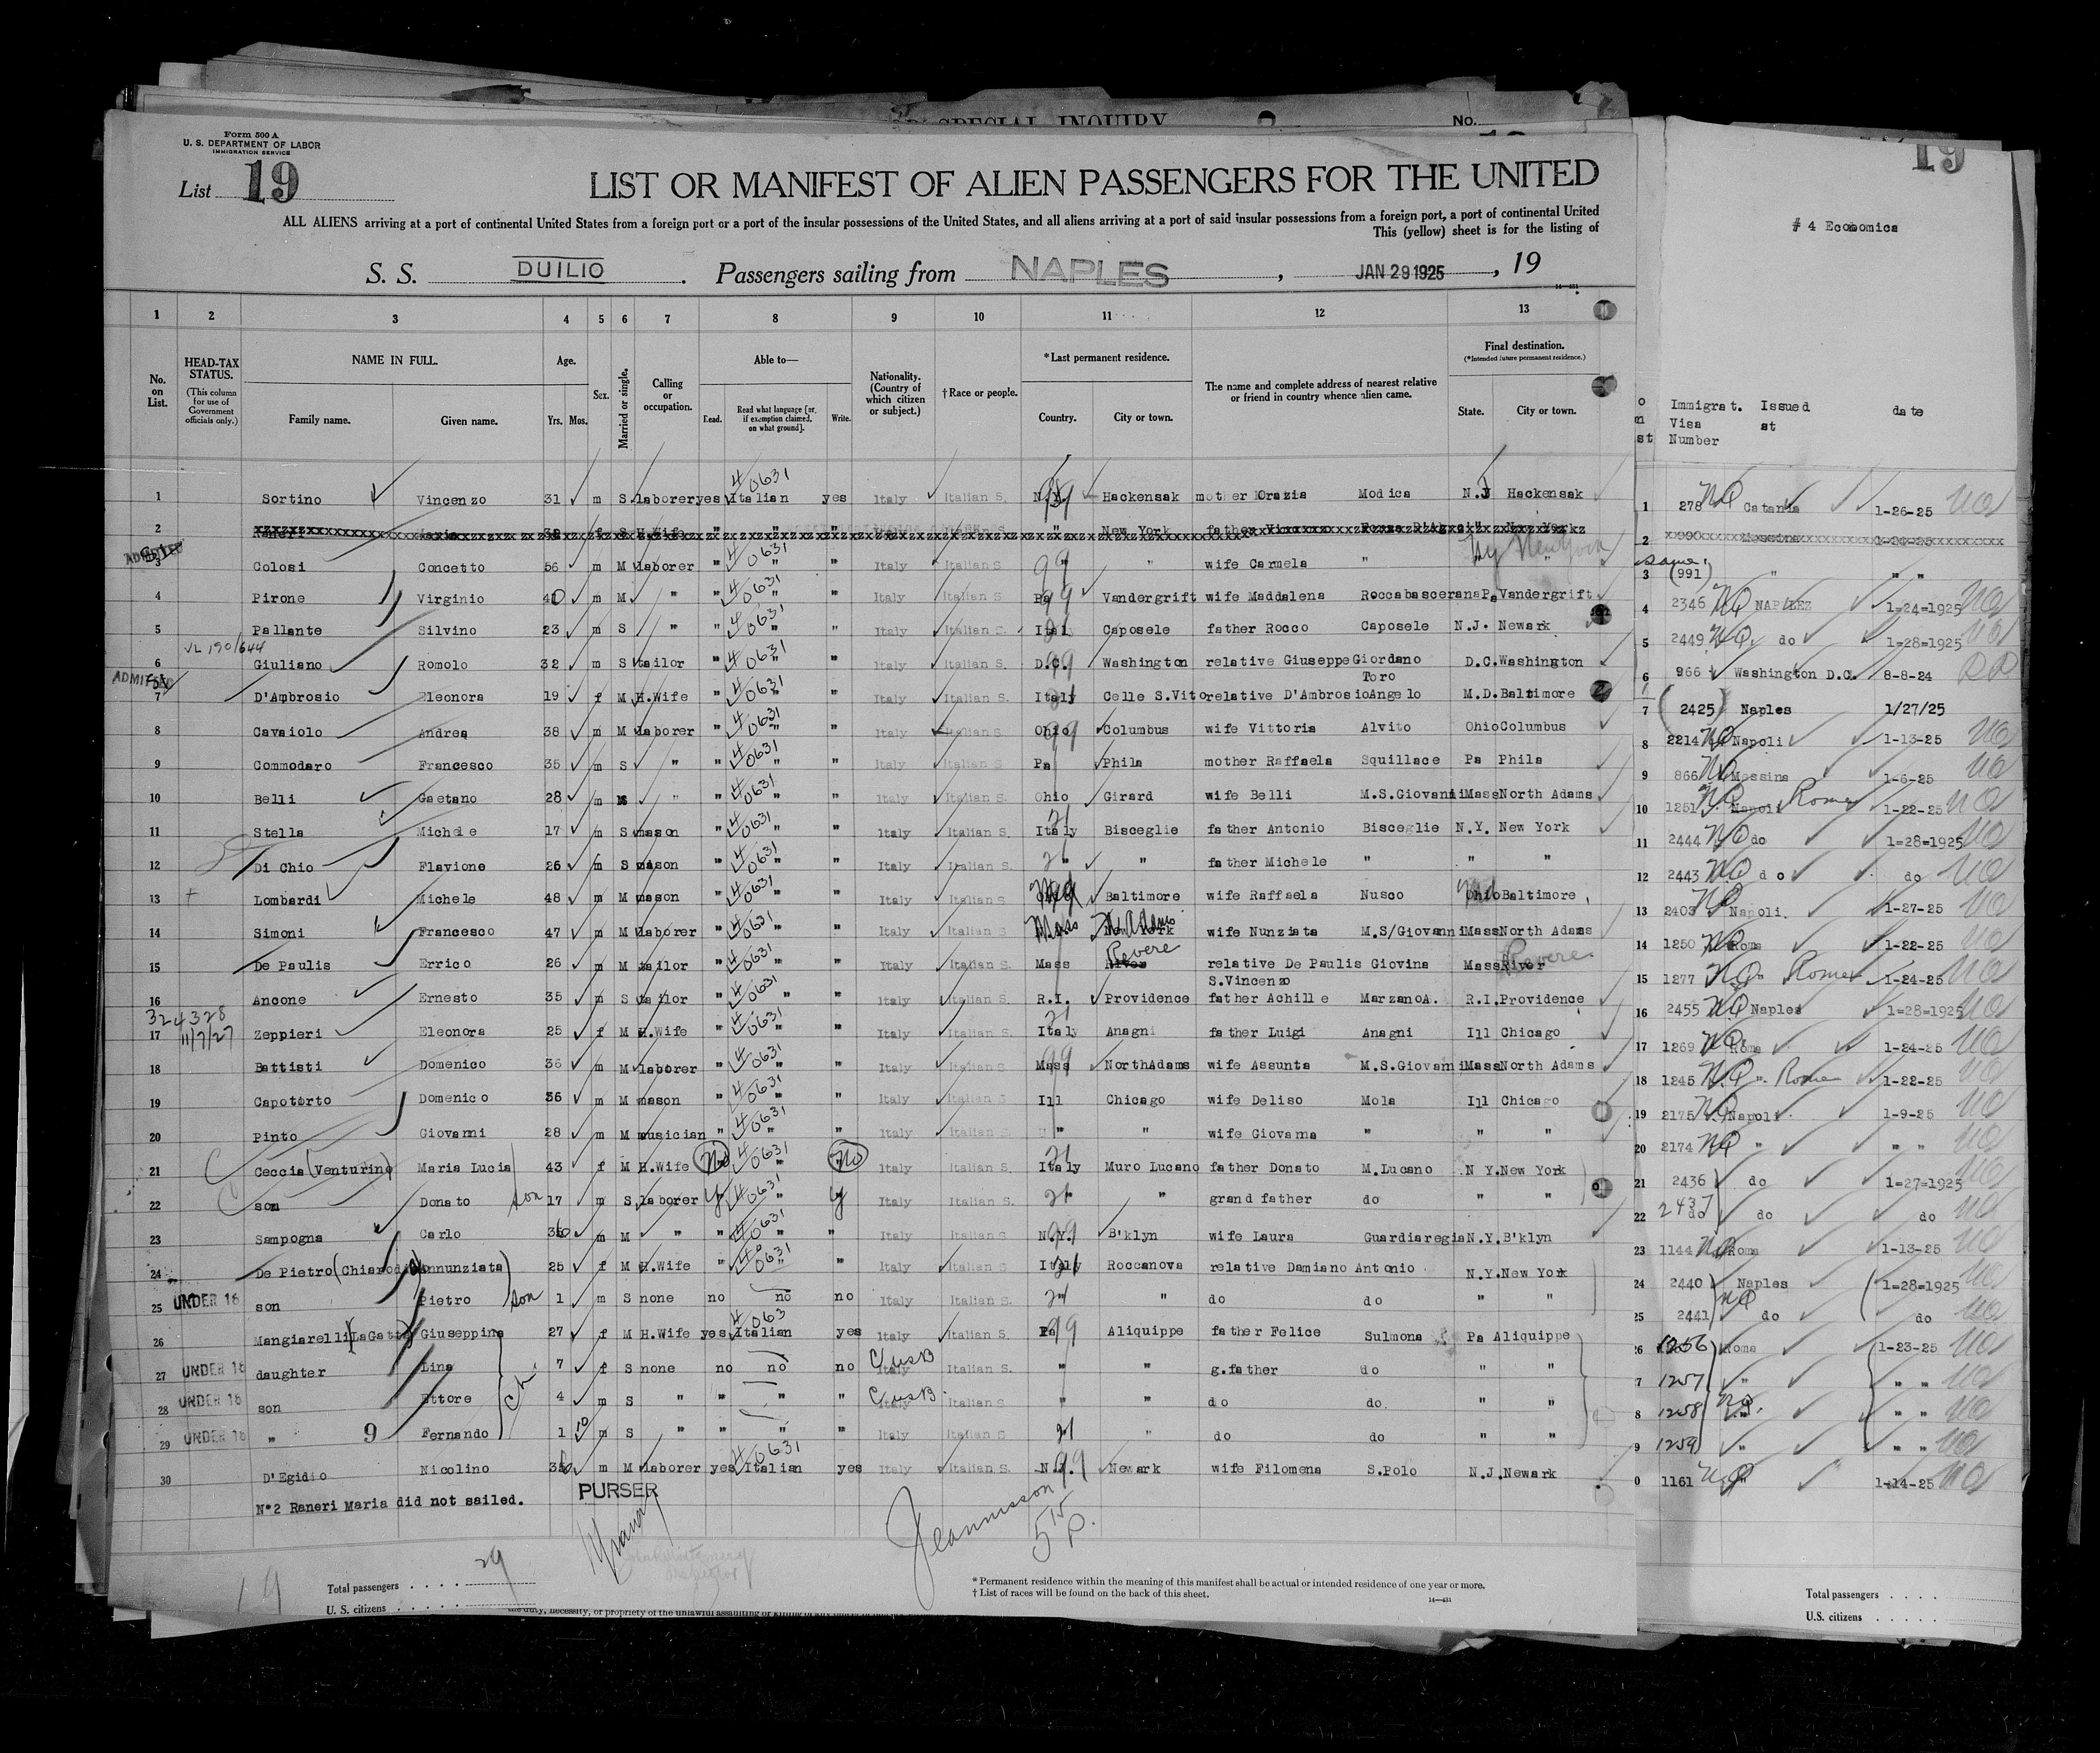 OR SPECIAL INQUIRY No.
Form 500 A
U. S. DEPARTMENT OF LABOR
IMMIGRATION SERVICE
List 19
LIST OR MANIFEST OF ALIEN PASSENGERS FOR THE UNITED
ALL ALIENS arriving at a port of continental United States from a foreign port or a port of the insular possessions of the United States, and all aliens arriving at a port of said insular possessions from a foreign port, a port of continental United
This (yellow) sheet is for the listing of
S. S. DUILIO. Passengers sailing from NAPLES, JAN 29 1925, 19
1 2 3 4 5 6 7 8 9 10 11 12 13
No. on List.
HEAD-TAX STATUS.
(This column for use of Government officials only.)
NAME IN FULL.
Family name. Given name.
Age.
Yrs. Mos.
Sex.
Married or single.
Calling or occupation.
Able to—
Read. Read what language [or, if exemption claimed, on what ground]. Write.
Nationality. (Country of which citizen or subject.)
† Race or people.
* Last permanent residence.
Country. City or town.
The name and complete address of nearest relative or friend in country whence alien came.
Final destination.
(*Intended future permanent residence.)
State. City or town.
1 Sortino Vincenzo 31 m S laborer yes Italian yes Italy Italian S. N.Y. Hackensak mother Orazia Modica N.J Hackensak
2 Raneri Maria f S H.Wife " " " " New York father
ADMITTED
3 Colosi Concetto 56 m M laborer " " " Italy Italian S " wife Carmela " Ny New York
4 Pirone Virginio 40 m M " " " " Italy Italian S Pa Vandergrift wife Maddalena Roccabascerana Pa Vandergrift
5 Pallante Silvino 23 m S " " " " Italy Italian S. Italy Caposele father Rocco Caposele N.J. Newark
VL 190/644
6 Giuliano Romolo 32 m S tailor " " " Italy Italian S. D.C. Washington relative Giuseppe Giordano D.C. Washington
ADMITTED
7 D'Ambrosio Eleonora 19 f M H.Wife " " " Italy Italian S. Italy Celle S.Vito relative D'Ambrosio Angelo Toro M.D. Baltimore
8 Cavaiolo Andrea 38 m M laborer " " " Italy Italian S. Ohio Columbus wife Vittoria Alvito Ohio Columbus
9 Commodaro Francesco 35 m S " " " " Italy Italian S Pa Phila mother Raffaela Squillace Pa Phila
10 Belli Gaetano 28 m " " " " Italy Italian S. Ohio Girard wife Belli M.S.Giovanni Mass North Adams
11 Stella Michele 17 m S mason " " " Italy Italian S. Italy Bisceglie father Antonio Bisceglie N.Y. New York
12 Di Chio Flavione 26 m S mason " " " Italy Italian S. " " father Michele " " "
13 Lombardi Michele 48 m M mason " " " Italy Italian S. Md Baltimore wife Raffaela Nusco Ohio Baltimore
14 Simoni Francesco 47 m M laborer " " " Italy Italian S Mass N. Adams wife Nunziata M.S/Giovanni Mass North Adams
15 De Paulis Errico 26 m M tailor " " " Italy Italian S. Mass Revere relative De Paulis Giovina Mass River Revere
S.Vincenzo
16 Ancone Ernesto 35 m S tailor " " " Italy Italian S. R.I. Providence father Achille Marzano A. R.I. Providence
324328
11/7/27
17 Zeppieri Eleonora 25 f M H.Wife " " " Italy Italian S. Italy Anagni father Luigi Anagni Ill Chicago
18 Battisti Domenico 36 m M laborer " " " Italy Italian S Mass NorthAdams wife Assunta M.S.Giovanni Mass North Adams
19 Capotorto Domenico 36 m M mason " " " Italy Italian S Ill Chicago wife Deliso Mola Ill Chicago
20 Pinto Giovanni 28 m M musician " " " Italy Italian S. " " wife Giovanna " " "
21 Ceccia (Venturino) Maria Lucia 43 f M H.Wife No " No Italy Italian S. Italy Muro Lucano father Donato M.Lucano N Y. New York
22 son Donato son 17 m S laborer y " y Italy Italian S. " " grand father do " "
23 Sampogna Carlo 36 m M " " " " Italy Italian S N.Y. B'klyn wife Laura Guardiaregia N.Y. B'klyn
24 De Pietro (Chiarodia) Annunziata 25 f M H.Wife " " " Italy Italian S. Italy Roccanova relative Damiano Antonio N.Y. New York
25 UNDER 16 son Pietro son 1 m S none no no no Italy Italian S. " " do do " "
26 Mangiarelli (LaGatta) Giuseppina 27 f M H.Wife yes Italian yes Italy Italian S. Pa Aliquippe father Felice Sulmona Pa Aliquippe
27 UNDER 16 daughter Lina 7 f S none no no no C/USB Italy Italian S. " " g.father do " "
28 UNDER 16 son Ettore 4 m S " " " " C/USB Italy Italian S " " do do. " "
29 UNDER 16 " 9 Fernando 1 10 m S " " " " Italy Italian S. " " do do " "
30 D'Egidio Nicolino 36 m M laborer yes Italian yes Italy Italian S. N.J. Newark wife Filomena S.Polo N.J. Newark
N°2 Raneri Maria did not sailed.
PURSER
5 15 P.
19
Total passengers 29
U. S. citizens
* Permanent residence within the meaning of this manifest shall be actual or intended residence of one year or more.
† List of races will be found on the back of this sheet.
14—431
19
# 4 Economica
Immigrat. Visa Number Issued at date
1 278 Catania 1-26-25
2 990 Messina 1-24-25
3 (991) " " "
4 2346 NAPLEZ 1=24=1925
5 2449 do 1=28=1925
6 966 Washington D.C. 8-8-24
7 2425 Naples 1/27/25
8 2214 Napoli 1-13-25
9 866 Messina 1-6-25
10 1251 Napoli Rome 1-22-25
11 2444 do 1=28=1925
12 2443 do do
13 2403 Napoli. 1-27-25
14 1250 Roma 1-22-25
15 1277 " Rome 1-24-25
16 2455 Naples 1=28=1925
17 1269 Roma 1-24-25
18 1245 " Rome 1-22-25
19 2175 Napoli 1-9-25
20 2174 " " "
21 2436 do 1=27=1925
22 2437 do do do
23 1144 Roma 1-13-25
24 2440 Naples 1=28=1925
25 2441 do do
26 1256 Roma 1-23-25
7 1257 " " "
8 1258 " " "
9 1259 " " "
0 1161 " 1-14-25
Total passengers
U.S. citizens